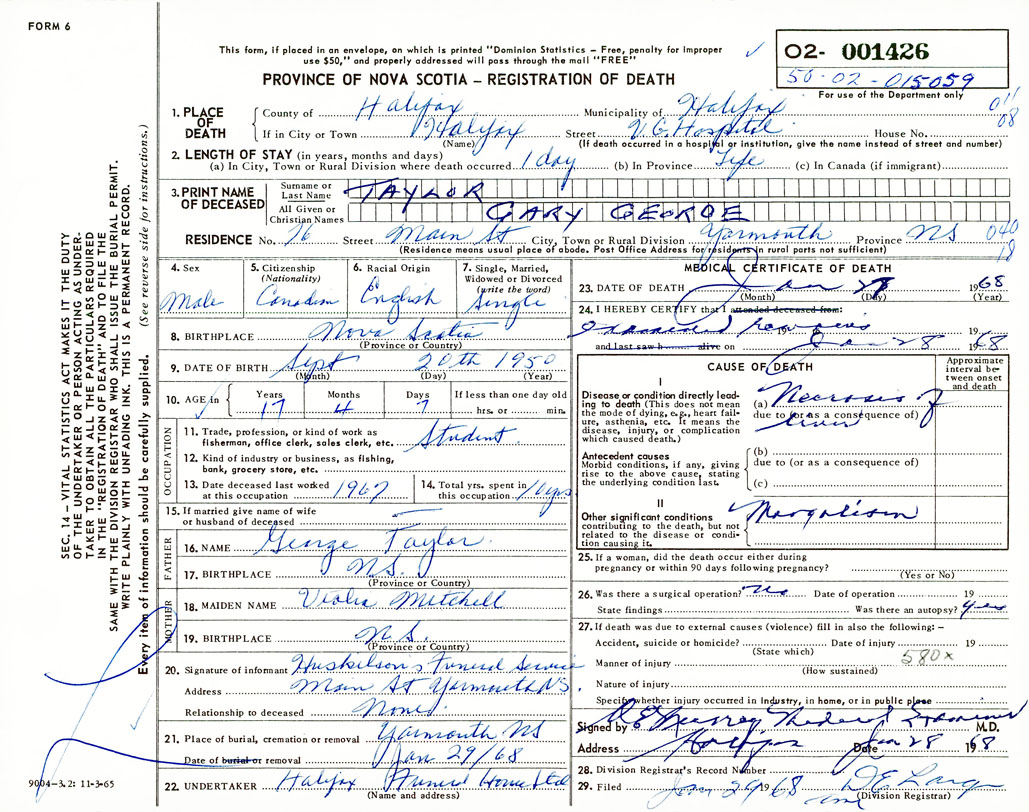 FORM 6
This form, if placed in an envelope, on which is printed "Dominion Statistics – Free, penalty for improper
use $50," and properly addressed will pass through the mail "FREE"
PROVINCE OF NOVA SCOTIA – REGISTRATION OF DEATH
02- 001426
50-02-015059
For use of the Department only
SEC. 14 – VITAL STATISTICS ACT MAKES IT THE DUTY
OF THE UNDERTAKER OR PERSON ACTING AS UNDER-
TAKER TO OBTAIN ALL THE PARTICULARS REQUIRED
IN THE "REGISTRATION OF DEATH" AND TO FILE THE
SAME WITH THE DIVISION REGISTRAR WHO SHALL ISSUE THE BURIAL PERMIT.
WRITE PLAINLY WITH UNFADING INK. THIS IS A PERMANENT RECORD.
Every item of information should be carefully supplied. (See reverse side for instructions.)
1. PLACE OF DEATH
County of Halifax Municipality of Halifax 011
If in City or Town Halifax Street V.G. Hospital House No. 08
(Name) (If death occurred in a hospital or institution, give the name instead of street and number)
2. LENGTH OF STAY (in years, months and days)
(a) In City, Town or Rural Division where death occurred 1 day (b) In Province Life (c) In Canada (if immigrant)
3. PRINT NAME OF DECEASED
Surname or Last Name TAYLOR
All Given or Christian Names GARY GEORGE
RESIDENCE No. 76 Street Main St City, Town or Rural Division Yarmouth Province NS 040
(Residence means usual place of abode. Post Office Address for residents in rural parts not sufficient) 18
4. Sex Male
5. Citizenship (Nationality) Canadian
6. Racial Origin English
7. Single, Married, Widowed or Divorced (write the word) Single
8. BIRTHPLACE Nova Scotia
(Province or Country)
9. DATE OF BIRTH Sept 20th 1950
(Month) (Day) (Year)
10. AGE in Years 17 Months 4 Days 7 If less than one day old hrs. or min.
OCCUPATION
11. Trade, profession, or kind of work as
fisherman, office clerk, sales clerk, etc. Student
12. Kind of industry or business, as fishing,
bank, grocery store, etc.
13. Date deceased last worked at this occupation 1967
14. Total yrs. spent in this occupation 10 yrs
15. If married give name of wife
or husband of deceased —
FATHER
16. NAME George Taylor
17. BIRTHPLACE N.S.
(Province or Country)
MOTHER
18. MAIDEN NAME Viola Mitchell
19. BIRTHPLACE N.S.
(Province or Country)
20. Signature of informant Huskilson's Funeral Service
Address Main St Yarmouth NS.
Relationship to deceased None
21. Place of burial, cremation or removal Yarmouth NS
Date of burial or removal Jan 29/68
22. UNDERTAKER Halifax Funeral Home Ltd
(Name and address)
9004–3.2: 11-3-65
MEDICAL CERTIFICATE OF DEATH
23. DATE OF DEATH Jan 28 1968
(Month) (Day) (Year)
24. I HEREBY CERTIFY that I attended deceased from:
Examined remains 19
and last saw h alive on Jan 28 1968
CAUSE OF DEATH
Approximate interval between onset and death
I
Disease or condition directly lead-
ing to death (This does not mean
the mode of dying, e.g., heart fail-
ure, asthenia, etc. It means the
disease, injury, or complication
which caused death.)
(a) Necrosis of
due to (or as a consequence of)
liver
Antecedent causes
Morbid conditions, if any, giving
rise to the above cause, stating
the underlying condition last.
(b)
due to (or as a consequence of)
(c)
II
Other significant conditions
contributing to the death, but not
related to the disease or condi-
tion causing it.
25. If a woman, did the death occur either during
pregnancy or within 90 days following pregnancy?
(Yes or No)
26. Was there a surgical operation? No Date of operation 19
State findings Was there an autopsy? Yes
27. If death was due to external causes (violence) fill in also the following: –
Accident, suicide or homicide? Date of injury 19
(State which) 580x
Manner of injury
(How sustained)
Nature of injury
Specify whether injury occurred in Industry, in home, or in public place
Signed by Medical Examiner M.D.
Address Halifax Date Jan 28 1968
28. Division Registrar's Record Number
29. Filed Jan 29 1968
(Division Registrar)